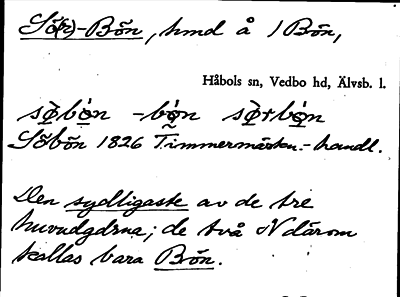 Sö(r)-Bön, hmd å /Bön,
Håbols sn, Vedbo hd, Älvsb. l.
Söbön 1826 Timmermärken.-handl.
Den sydligaste av de tre
huvudgdrna; de två N därom
kallas bara Bön.